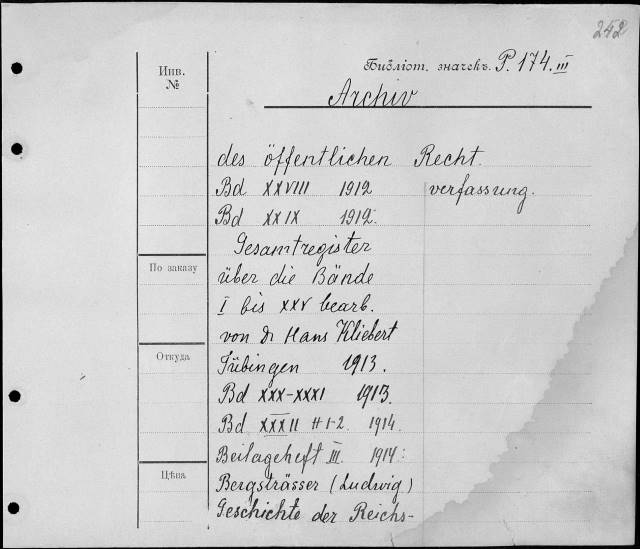 252
Библіот. значекъ. P. 174. III
Инв.
№
Archiv
des öffentlichen Recht.
Bd XXVIII 1912
verfassung.
Bd XXIX 1912.
Gesamtregister
По заказу
über die Bände
I bis XXV bearb.
von Dr Hans Kliebert
Откуда
Tübingen 1913.
Bd XXX-XXXI 1913.
Bd XXXII H 1-2. 1914.
Beilageheft III. 1914:
Цѣна
Bergsträsser (Ludwig)
Geschichte der Reichs-